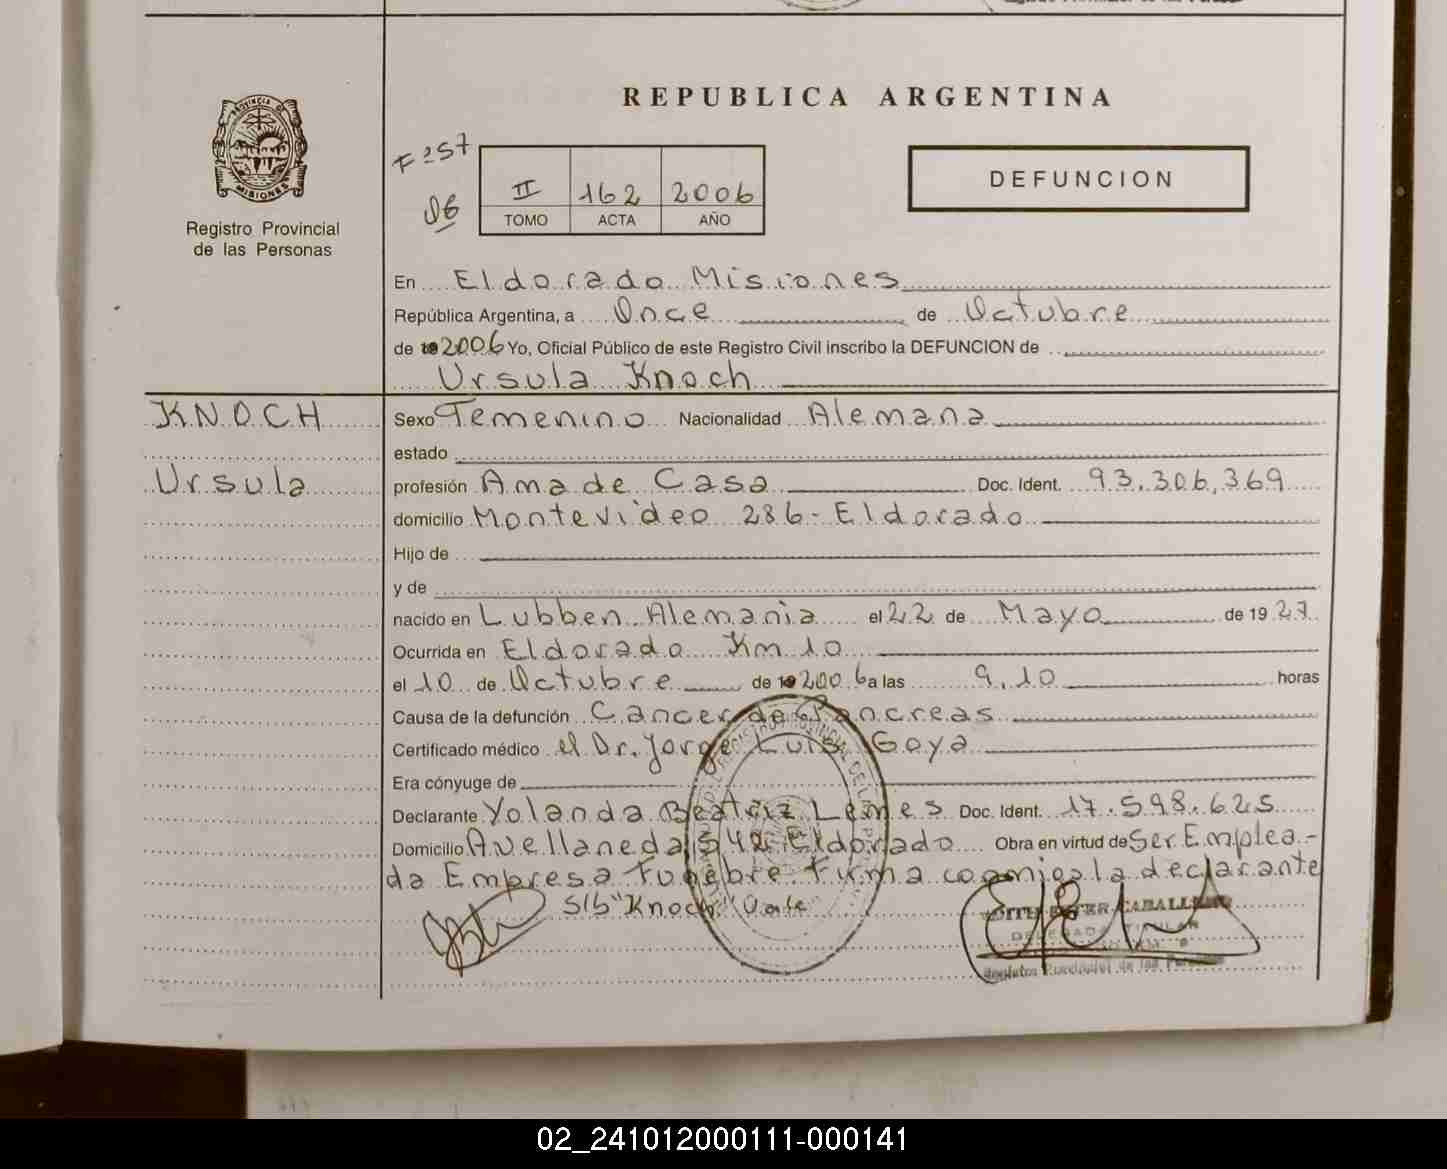 REPUBLICA ARGENTINA
PROVINCIA DE
MISIONES
Registro Provincial
de las Personas
II 162 2006
06
TOMO ACTA AÑO
DEFUNCION
En Eldorado Misiones
República Argentina, a Once de Octubre
de 2006 Yo, Oficial Público de este Registro Civil inscribo la DEFUNCION de
Ursula Knoch
KNOCH
Ursula
Sexo Femenino Nacionalidad Alemana
estado
profesión Ama de Casa Doc. Ident. 93.306.369
domicilio Montevideo 286- Eldorado
Hijo de
y de
nacido en Lubben Alemania el 22 de Mayo de 1927
Ocurrida en Eldorado Km 10
el 10 de Octubre de 2006 a las 9,10 horas
Causa de la defunción Cancer de Pancreas
Certificado médico el Dr. Jorge Luis Goya
Era cónyuge de
Declarante Yolanda Beatriz Lemes Doc. Ident. 17.598.625
Domicilio Avellaneda 542 Eldorado Obra en virtud de Ser Emplea-
da Empresa Funebre. Firma conmigo la declarante
S/b "Knoch" Vale
EDITH ESTER CABALLERO
DELEGADA TITULAR
02_241012000111-000141